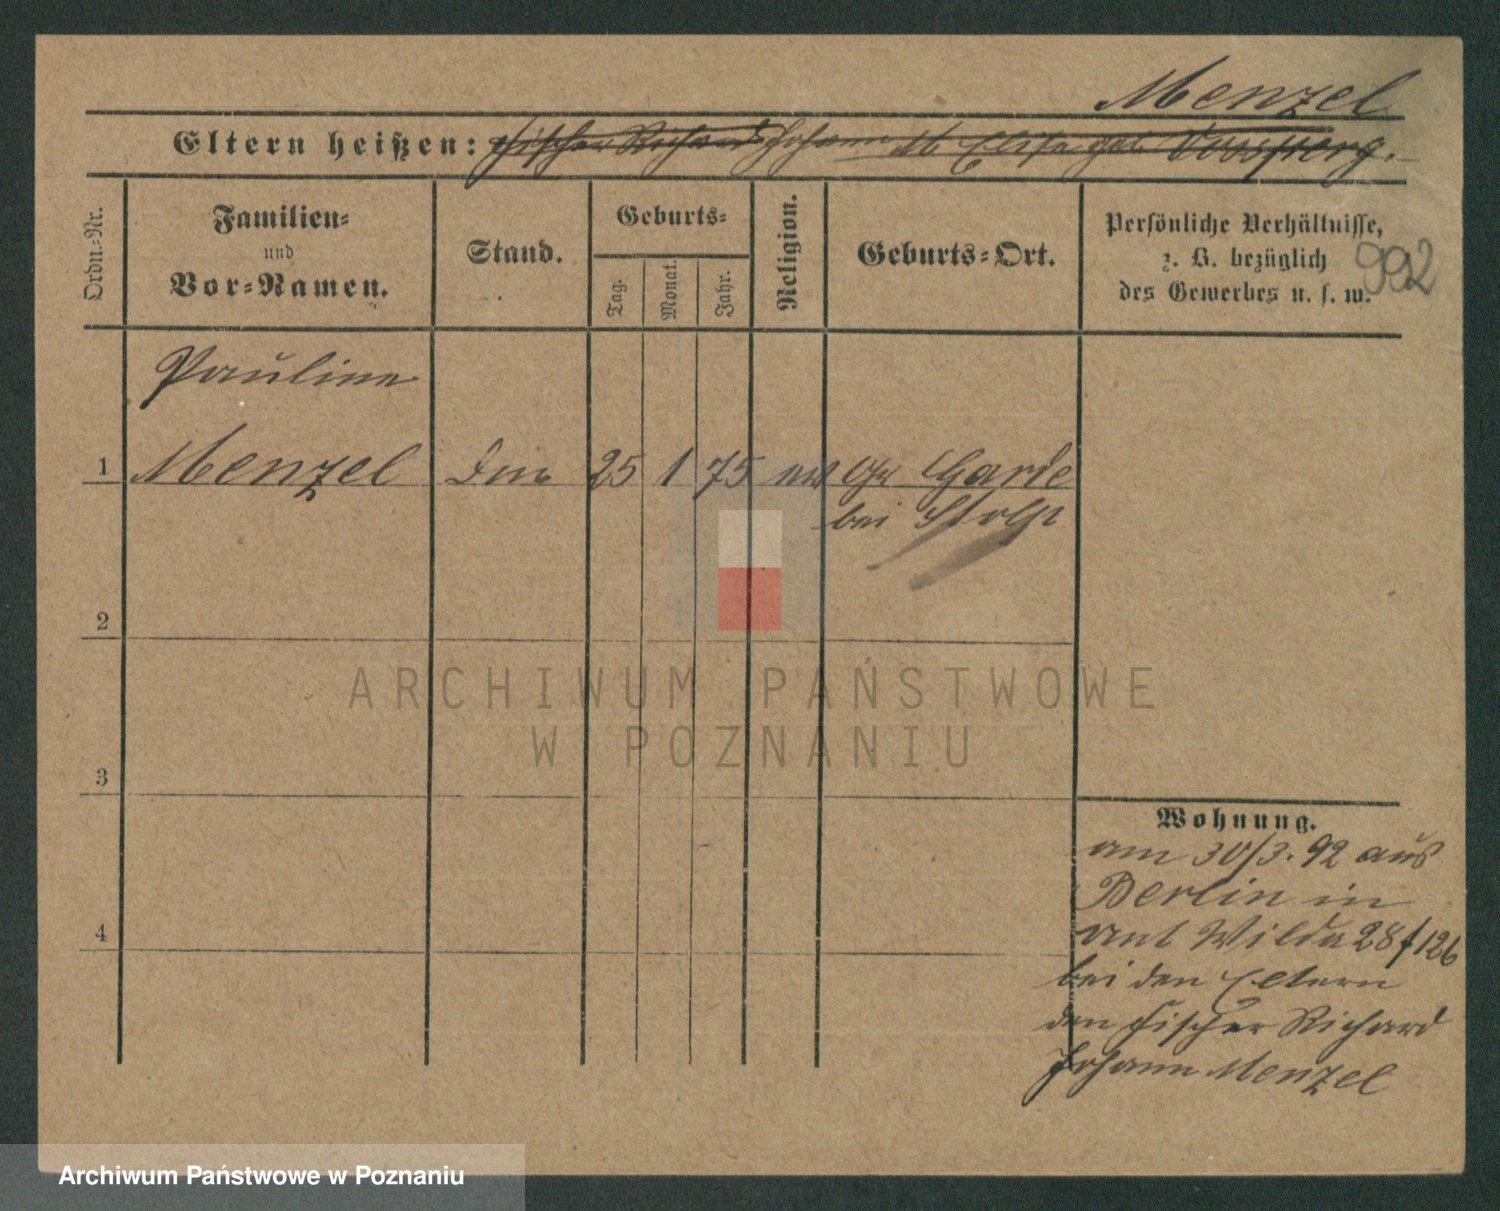 Menzel
Eltern heißen: Fischer Richard Johann M. Elise geb.
Ordn.-Nr.
Familien-
und
Vor-Namen.
Stand.
Geburts-
Tag.
Monat.
Jahr.
Religion.
Geburts-Ort.
Persönliche Verhältnisse,
z. B. bezüglich
des Gewerbes u. s. w.
992
Pauline
1 Menzel 25 1 75 Gr Garde
bei Stolp
2
3
4
ARCHIWUM PAŃSTWOWE
W POZNANIU
Wohnung.
am 30/3. 92 aus
Berlin in
Wilda 28 f 126
bei den Eltern
den Fischer Richard
Johann Menzel
Archiwum Państwowe w Poznaniu